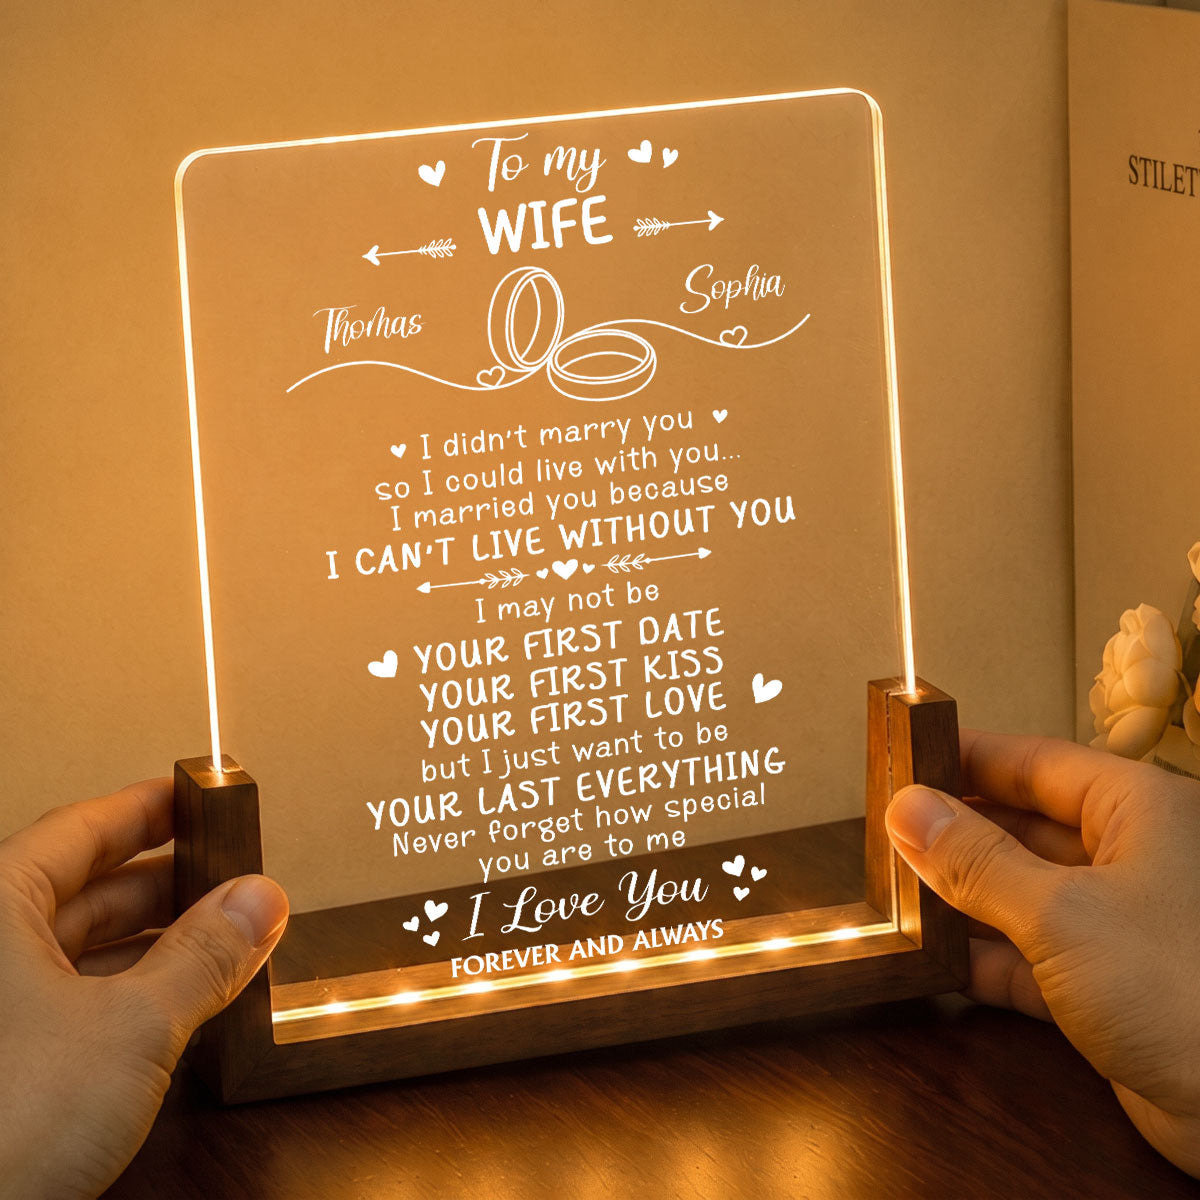 To my
WIFE
Thomas
Sophia
I didn't marry you
so I could live with you...
I married you because
I CAN'T LIVE WITHOUT YOU
I may not be
YOUR FIRST DATE
YOUR FIRST KISS
YOUR FIRST LOVE
but I just want to be
YOUR LAST EVERYTHING
Never forget how special
you are to me
I Love You
FOREVER AND ALWAYS
STILET